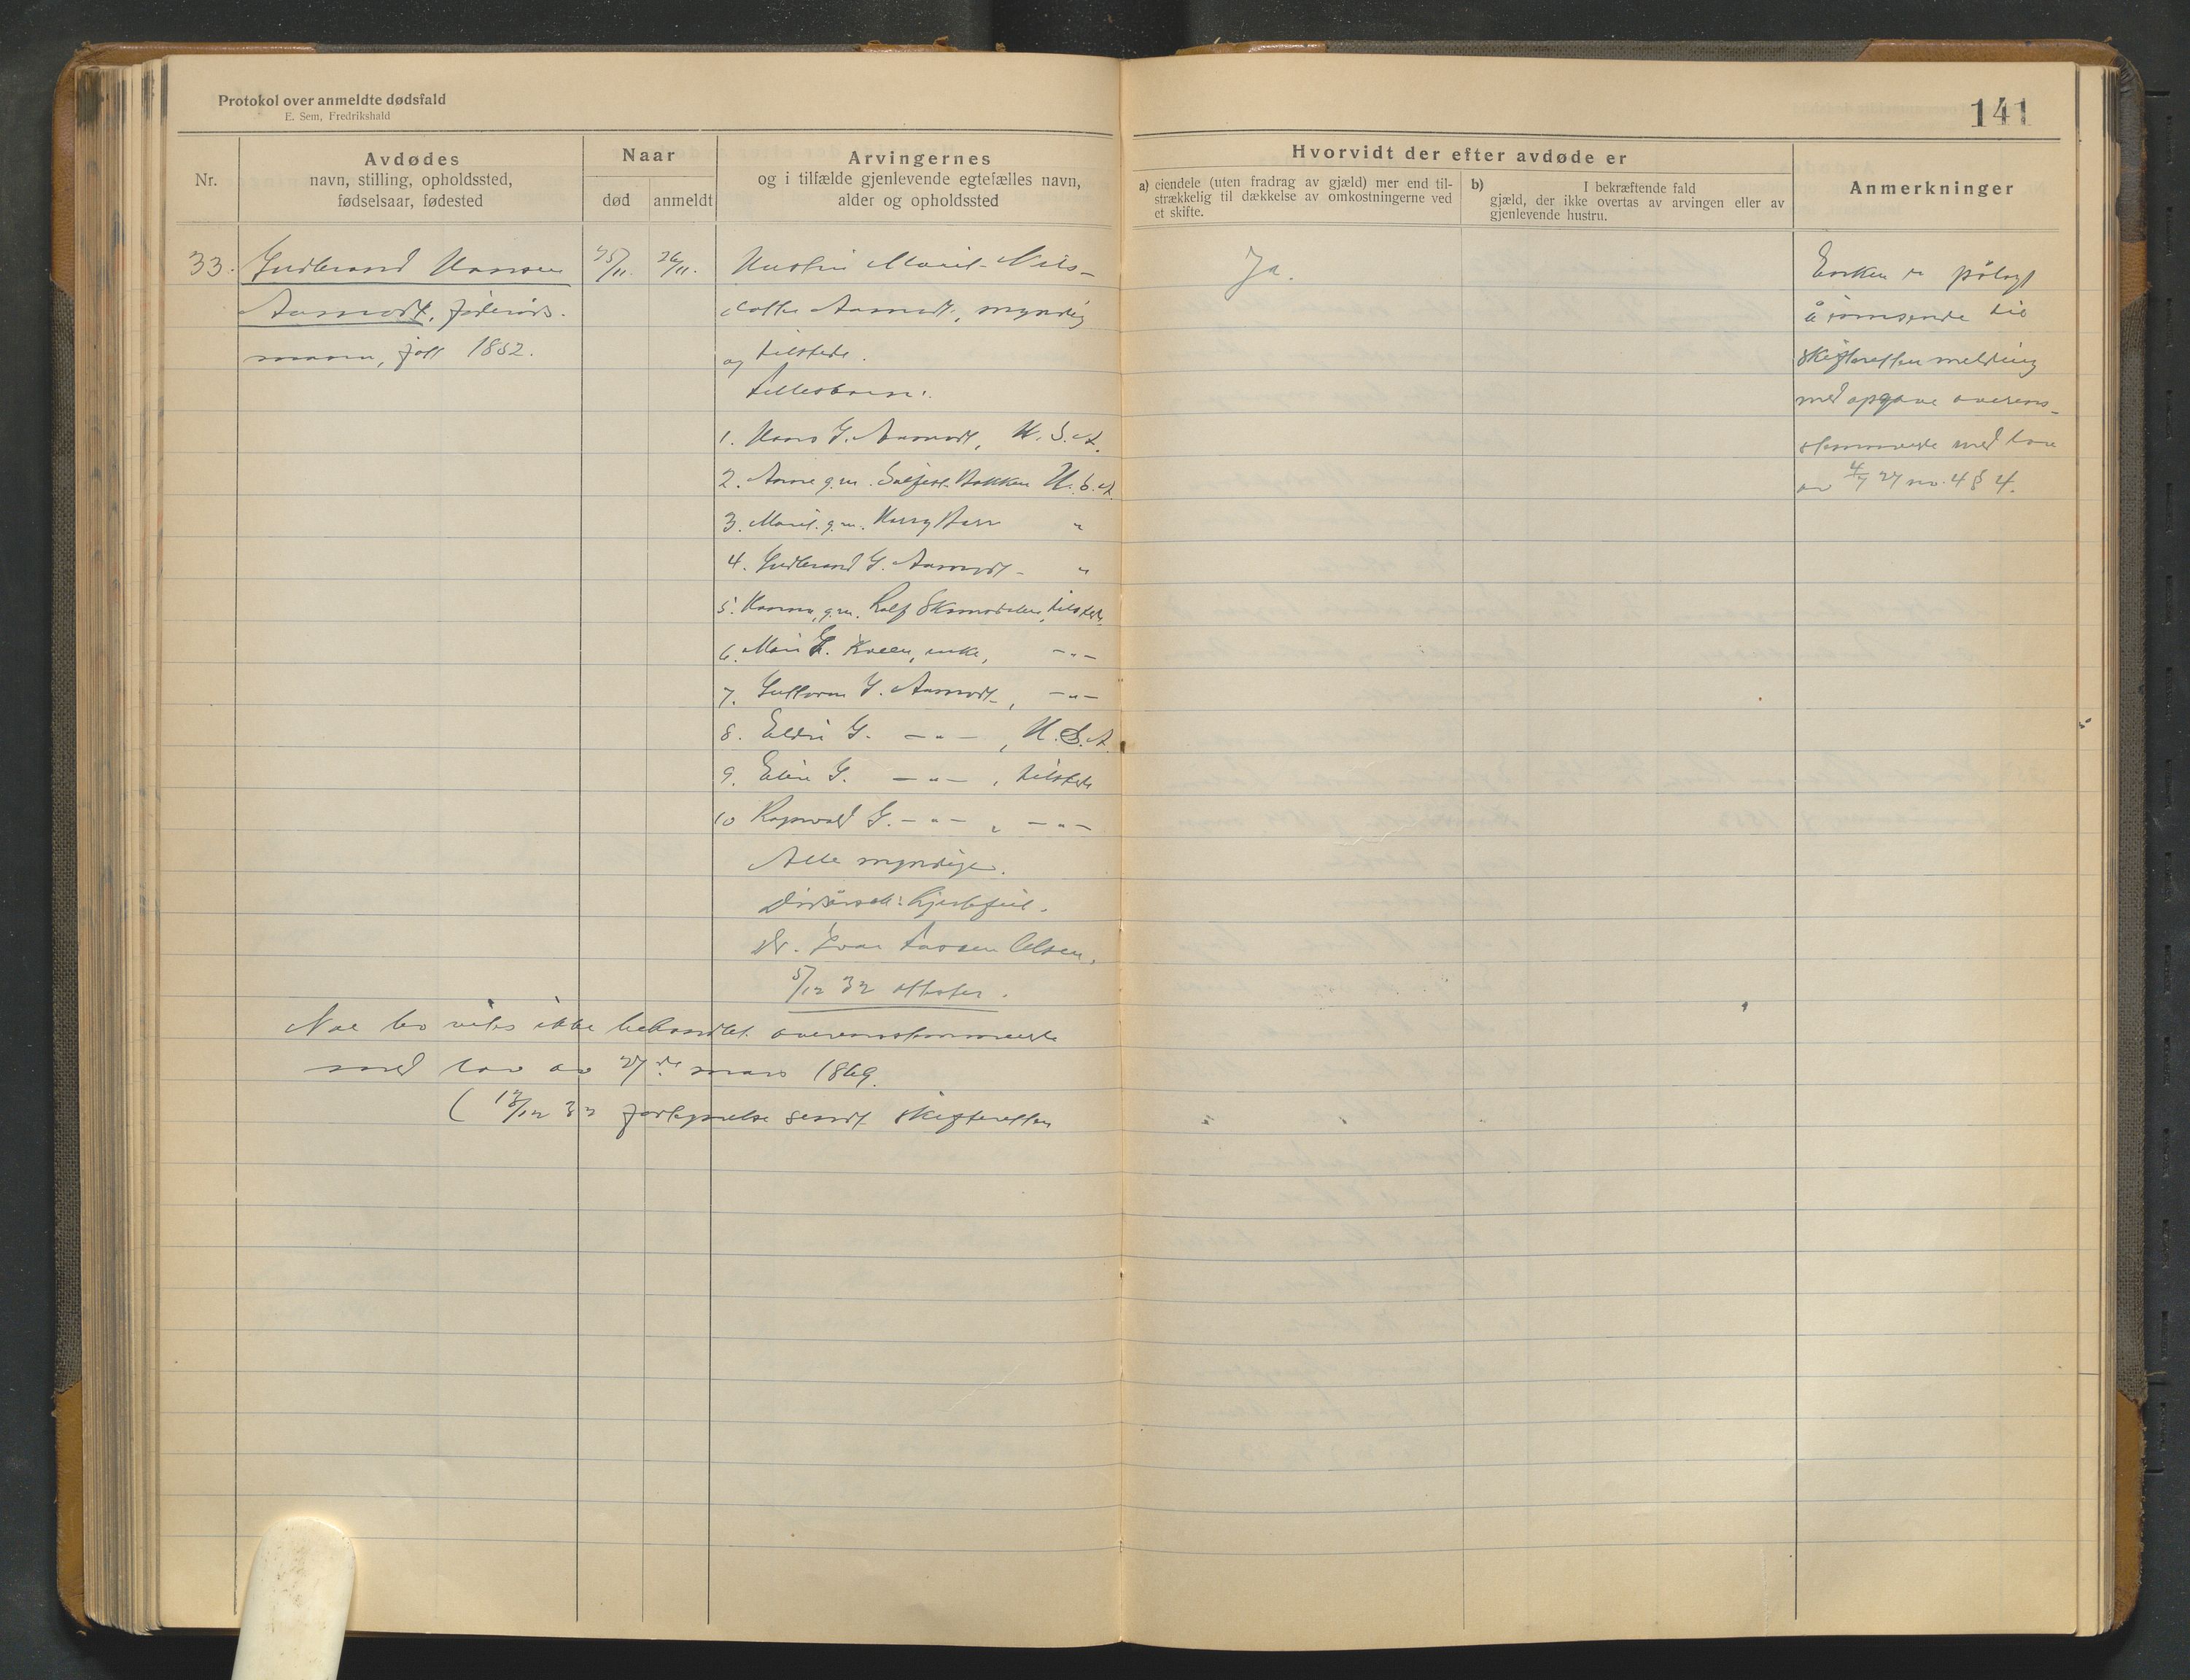 Protokol over anmeldte dødsfald
E. Sem, Fredrikshald
141
Nr.
Avdødes
navn, stilling, opholdssted,
fødselsaar, fødested
Naar
død
anmeldt
Arvingernes
og i tilfælde gjenlevende egtefælles navn,
alder og opholdssted
Hvorvidt der efter avdøde er
a) eiendele (uten fradrag av gjæld) mer end til-
strækkelig til dækkelse av omkostningerne ved
et skifte.
b) I bekræftende fald
gjæld, der ikke overtas av arvingen eller av
gjenlevende hustru.
Anmerkninger
33. Gudbrand Hansen
Aamodt, føderåds-
mann, født 1852.
25/11.
26/11.
Hustru Marit Nils-
datter Aamodt, myndig
og tilstede.
Fellesbarn:
1. Hans G. Aamodt, U.S.A.
2. Anne g.m. Bakken U.S.A.
3. Marit g.m. Harry "
4. Gudbrand G. Aamodt - "
5. Hanna, g.m. Rolf tilstede
6. Mari G. Kveen, enke, -"-
7. Guttorm G. Aamodt, -"-
8. Eldri G. -"-, U.S.A.
9. Eline G. -"-, tilstede
10 Ragnvald G. -"- , -"-
Alle myndige.
Dødsårsak: hjertefeil.
Dr. Ivar Larsen Olsen.
5/12 32 attester.
Ja.
Enken er pålagt
å innsende til
skifteretten melding
med opgave overens-
stemmende med lov
av 4/7 27 nr. 4 § 4.
bo vites ikke behandlet overensstemmende
med lov av 27de mars 1869.
( 13/12 32 sendt skifteretten